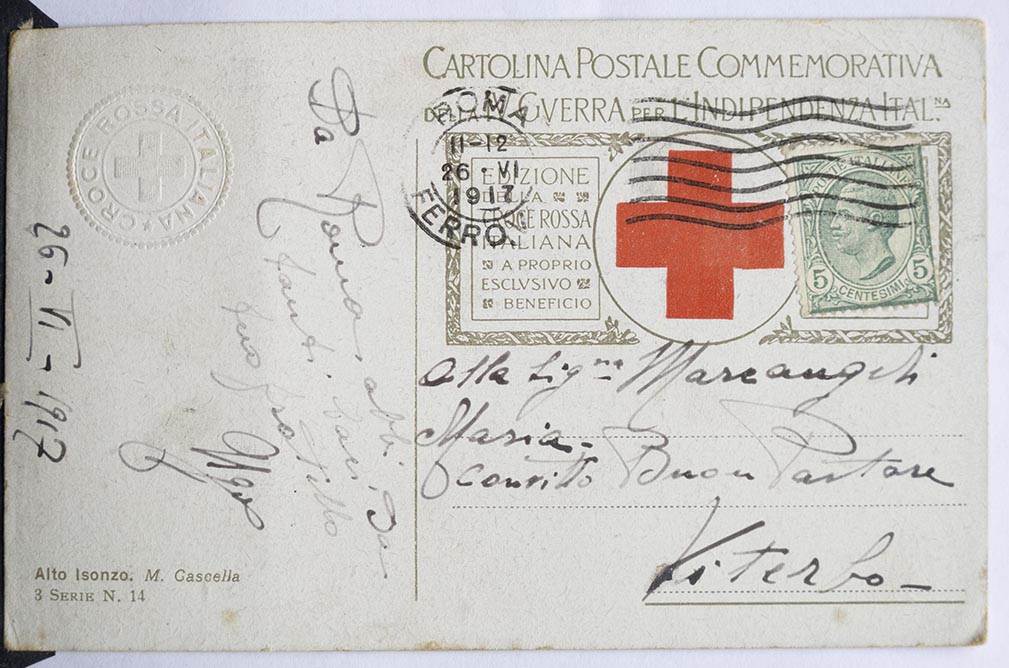 CARTOLINA POSTALE COMMEMORATIVA
DELLA IV GVERRA PER L'INDIPENDENZA ITAL.NA
ROMA
11-12
26 · VI
1917
FERRO.
EDIZIONE
DELLA
CROCE ROSSA
ITALIANA
A PROPRIO
ESCLVSIVO
BENEFICIO
POSTE ITALIANE
5
5
CENTESIMI
CROCE ROSSA ITALIANA
26 - VI - 1917
Da Roma abbi
tanti baci dal
tuo fratello
Ugo
Alla Sig.na Marcangeli
Maria -
Convitto Buon Pastore
Viterbo -
Alto Isonzo. M. Cascella
3 SERIE N. 14